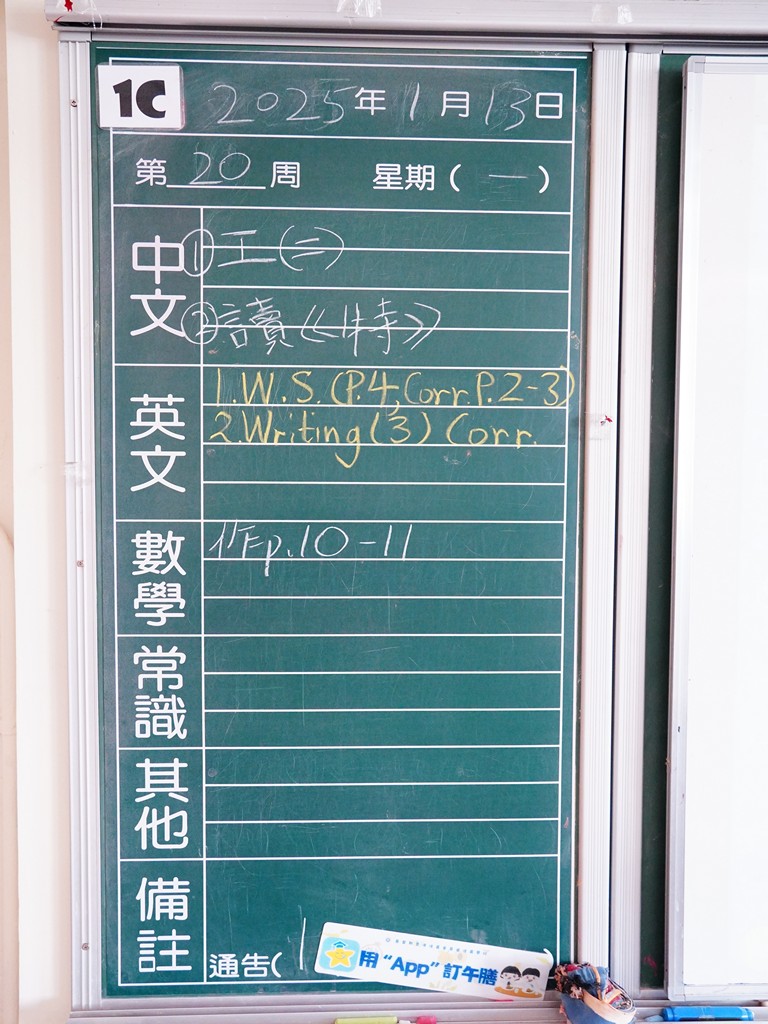 1C 2025年1月13日
第20周 星期(一)
中文
①工(二)
②讀《特》
英文
1.W.S.(P.4,Corr.P.2-3)
2.Writing(3) Corr.
數學
作p.10-11
常識
其他
備註
通告(1
用“App”訂午膳